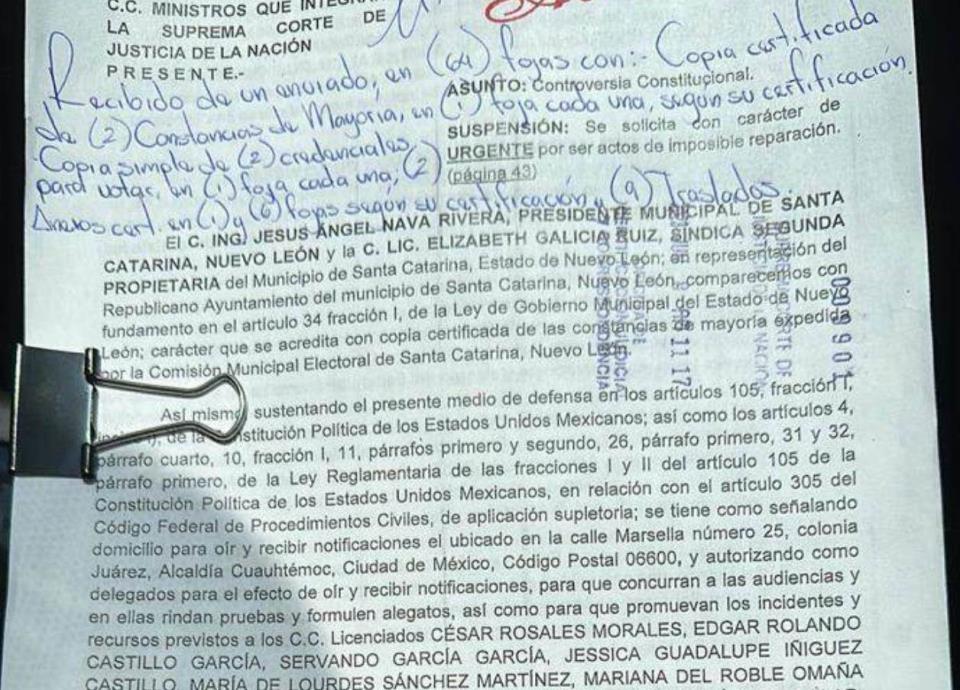 C.C. MINISTROS QUE
LA SUPREMA CORTE DE
JUSTICIA DE LA NACIÓN
P R E S E N T E.-
Recibido de un enviado, en (64) fojas con:- Copia certificada
ASUNTO: Controversia Constitucional.
de (2) Constancias de Mayoría, en (1) foja cada una, según su certificación.
SUSPENSIÓN: Se solicita con carácter de
Copia simple de (2) credenciales
URGENTE por ser actos de imposible reparación.
para votar, en (1) foja cada una, (2)
(página 43)
Anexos cert. en (1) y (6) fojas según su certificación y (9) Traslados.
El C. ING. JESUS ÁNGEL NAVA RIVERA, PRESIDENTE MUNICIPAL DE SANTA
CATARINA, NUEVO LEÓN y la C. LIC. ELIZABETH GALICIA RUIZ, SÍNDICA SEGUNDA
PROPIETARIA del Municipio de Santa Catarina, Estado de Nuevo León; en representación del
Republicano Ayuntamiento del municipio de Santa Catarina, Nuevo León, comparecemos con
fundamento en el artículo 34 fracción I, de la Ley de Gobierno Municipal del Estado de Nuevo
León; carácter que se acredita con copia certificada de las constancias de mayoría expedida
por la Comisión Municipal Electoral de Santa Catarina, Nuevo León.
Así mismo, sustentando el presente medio de defensa en los artículos 105, fracción I,
de la Constitución Política de los Estados Unidos Mexicanos; así como los artículos 4,
párrafo cuarto, 10, fracción I, 11, párrafos primero y segundo, 26, párrafo primero, 31 y 32,
párrafo primero, de la Ley Reglamentaria de las fracciones I y II del artículo 105 de la
Constitución Política de los Estados Unidos Mexicanos, en relación con el artículo 305 del
Código Federal de Procedimientos Civiles, de aplicación supletoria; se tiene como señalando
domicilio para oír y recibir notificaciones el ubicado en la calle Marsella número 25, colonia
Juárez, Alcaldía Cuauhtémoc, Ciudad de México, Código Postal 06600, y autorizando como
delegados para el efecto de oír y recibir notificaciones, para que concurran a las audiencias y
en ellas rindan pruebas y formulen alegatos, así como para que promuevan los incidentes y
recursos previstos a los C.C. Licenciados CÉSAR ROSALES MORALES, EDGAR ROLANDO
CASTILLO GARCÍA, SERVANDO GARCÍA GARCÍA, JESSICA GUADALUPE IÑIGUEZ
CASTILLO, MARÍA DE LOURDES SÁNCHEZ MARTÍNEZ, MARIANA DEL ROBLE OMAÑA